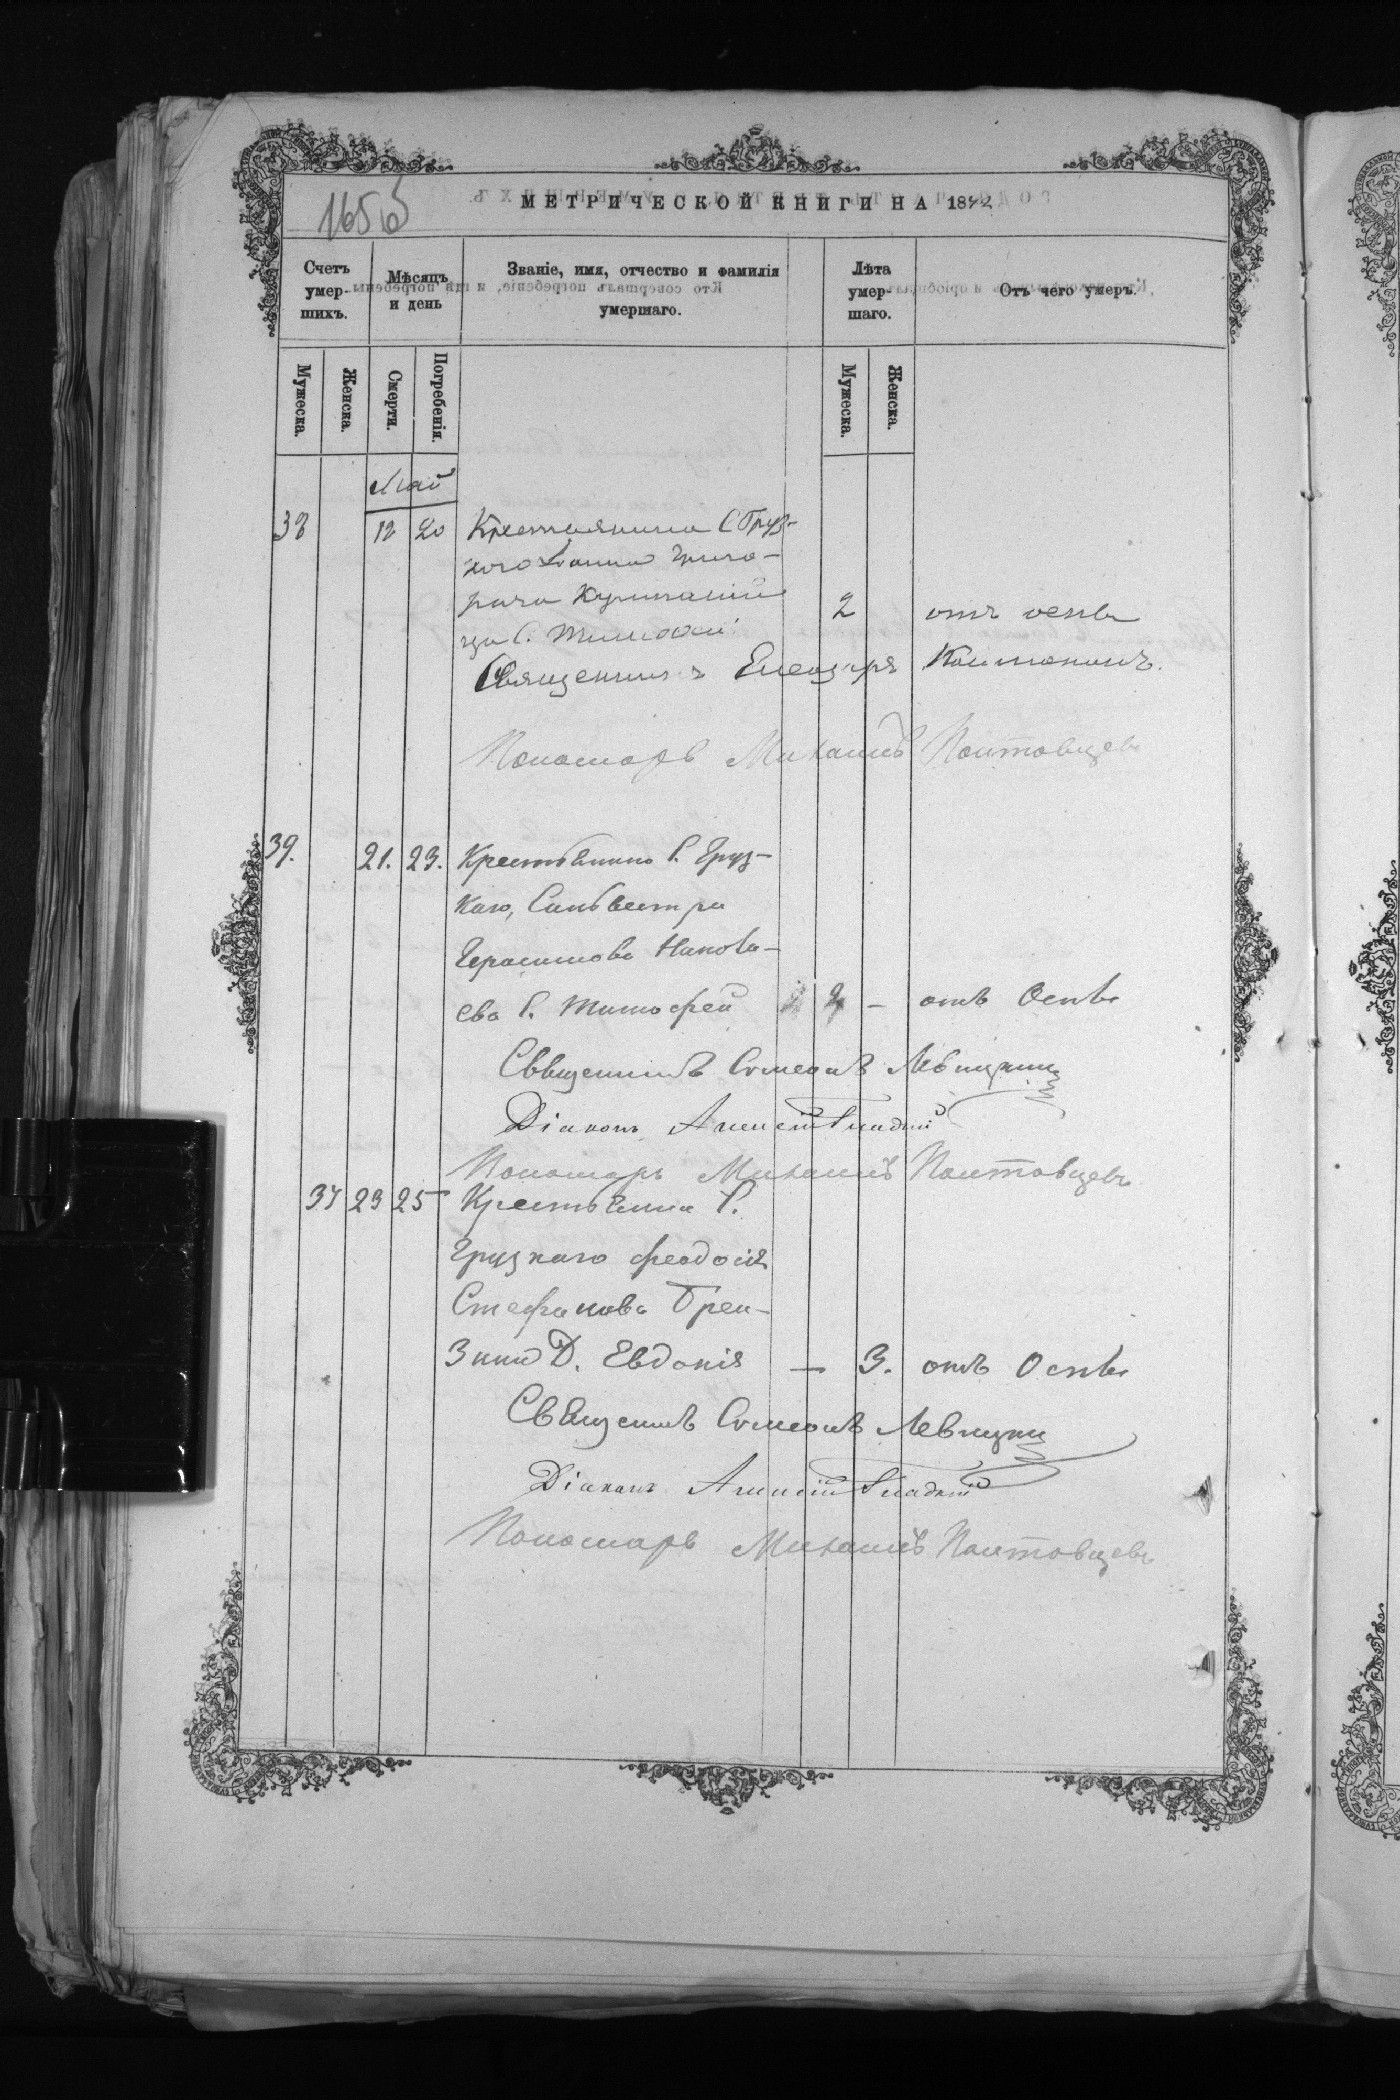 165 б
МЕТРИЧЕСКОЙ КНИГИ НА 1872
Счетъ умер-шихъ.
Мѣсяцъ и день
Званіе, имя, отчество и фамилія умершаго.
Лѣта умер-шаго.
Отъ чего умеръ.
Мужеска.
Женска.
Смерти.
Погребенія.
Мужеска.
Женска.
Май
38 12 20 Крестьянина С. Груз-
каго Іоанна Григо-
рьева
С. Тимофей 2 отъ оспы
Священникъ Елеазаръ
Пономарь Михаилъ Полтовцевъ
39. 21. 23. Крестьянина С. Груз-
каго, Сильвестра
Герасимова
ева С. Тимофей 2 – отъ Оспы
Священникъ Симеонъ Левицкій
Діаконъ
Пономарь Михаилъ Полтовцевъ
37 23 25 Крестьянина С.
Грузкаго Феодосія
Стефанова
Д. Евдокія — 3. отъ Оспы
Священникъ Симеонъ Левицкій
Діаконъ
Пономарь Михаилъ Полтовцевъ